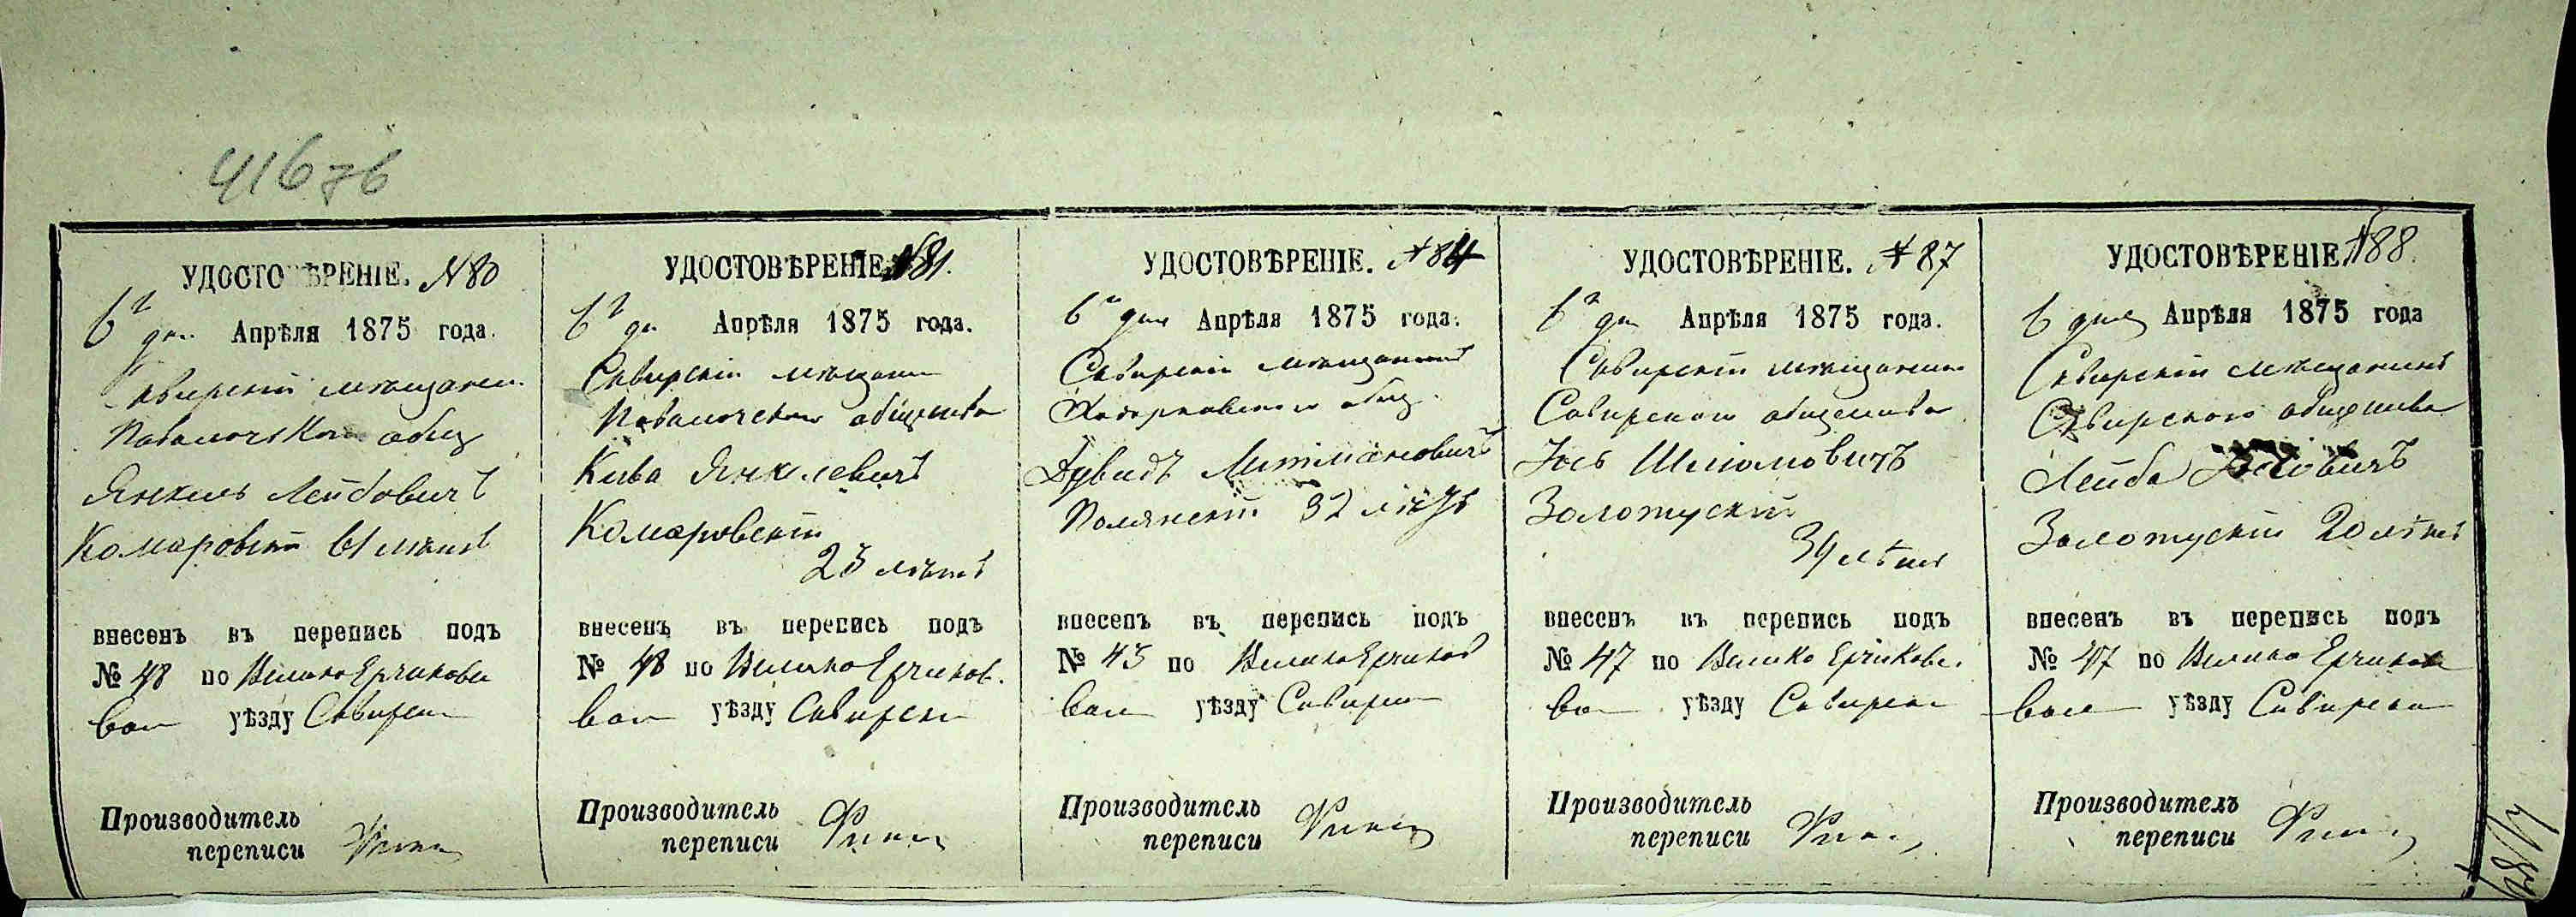 41676
УДОСТОВѢРЕНІЕ. №80
6го дня Апрѣля 1875 года.
Сквирскій мѣщанин
Паволочского общ
Янкель Лейбовичъ
Комаровскій 61 лѣтъ
внесенъ въ перепись подъ
№ 48 по ВеликоЕрчиковс
вол уѣзду Сквирск
Производитель
переписи
УДОСТОВѢРЕНІЕ. №81.
6го дн Апрѣля 1875 года.
Сквирскій мѣщанин
Паволочского общества
Кива Янкелевичъ
Комаровскій
23 лѣтъ
внесенъ въ перепись подъ
№ 48 по ВеликоЕрчиков.
вол уѣзду Сквирск
Производитель
переписи
УДОСТОВѢРЕНІЕ. №84
6го дня Апрѣля 1875 года.
Сквирскій мѣщанинъ
Ходорковского общ.
Дувидъ
Полянскій 32 лѣтъ
внесенъ въ перепись подъ
№ 43 по ВеликоЕрчиков
вол уѣзду Сквирск
Производитель
переписи
УДОСТОВѢРЕНІЕ. №87
6го дн Апрѣля 1875 года.
Сквирскій мѣщанин
Сквирского общества
Іось Шліомовичъ
Золотускій
39 лѣтъ
внесенъ въ перепись подъ
№ 47 по Велико Ерчиковс.
во уѣзду Сквирск
Производитель
переписи
УДОСТОВѢРЕНІЕ №88.
6 дня Апрѣля 1875 года
Сквирскій мѣщанинъ
Сквирского общества
Лейба Іосіовичъ
Золотускій 20 лѣтъ
внесенъ въ перепись подъ
№ 47 по Велико Ерчиков
вол уѣзду Сквирск
Производитель
переписи